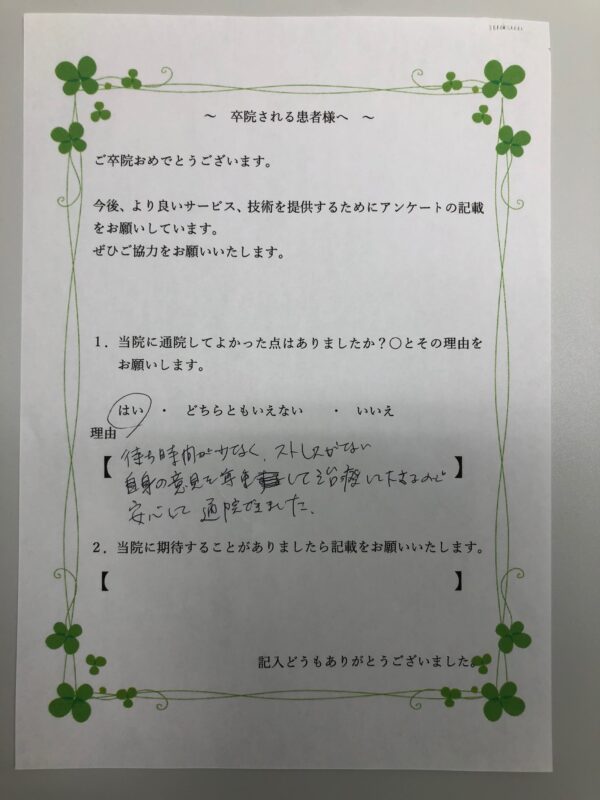 ～ 卒院される患者様へ ～
ご卒院おめでとうございます。
今後、より良いサービス、技術を提供するためにアンケートの記載
をお願いしています。
ぜひご協力をお願いいたします。
1．当院に通院してよかった点はありましたか？〇とその理由を
お願いします。
はい ・ どちらともいえない ・ いいえ
理由
【 待ち時間が少なく、ストレスがない
自身の意見を尊重して治療して下さるので 】
安心して通院できました。
2．当院に期待することがありましたら記載をお願いいたします。
【 】
記入どうもありがとうございました。